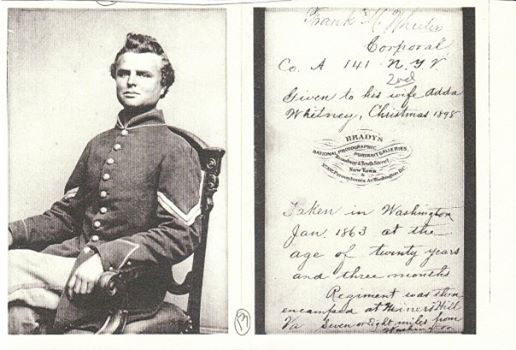 Frank H. Wheeler
Corporal
Co. A 141 N.Y.V
2nd
Given to his wife Adda
Whitney, Christmas 1898
BRADY'S
NATIONAL PHOTOGRAPHIC PORTRAIT GALLERIES,
Broadway & Tenth Street
New York
&
No. 352 Pennsylvania Av. Washington D.C.
Taken in Washington
Jan. 1863 at the
age of twenty years
and three months
Regiment was then
encamped at Miner's Hill
Va seven or eight miles from
Washington
13